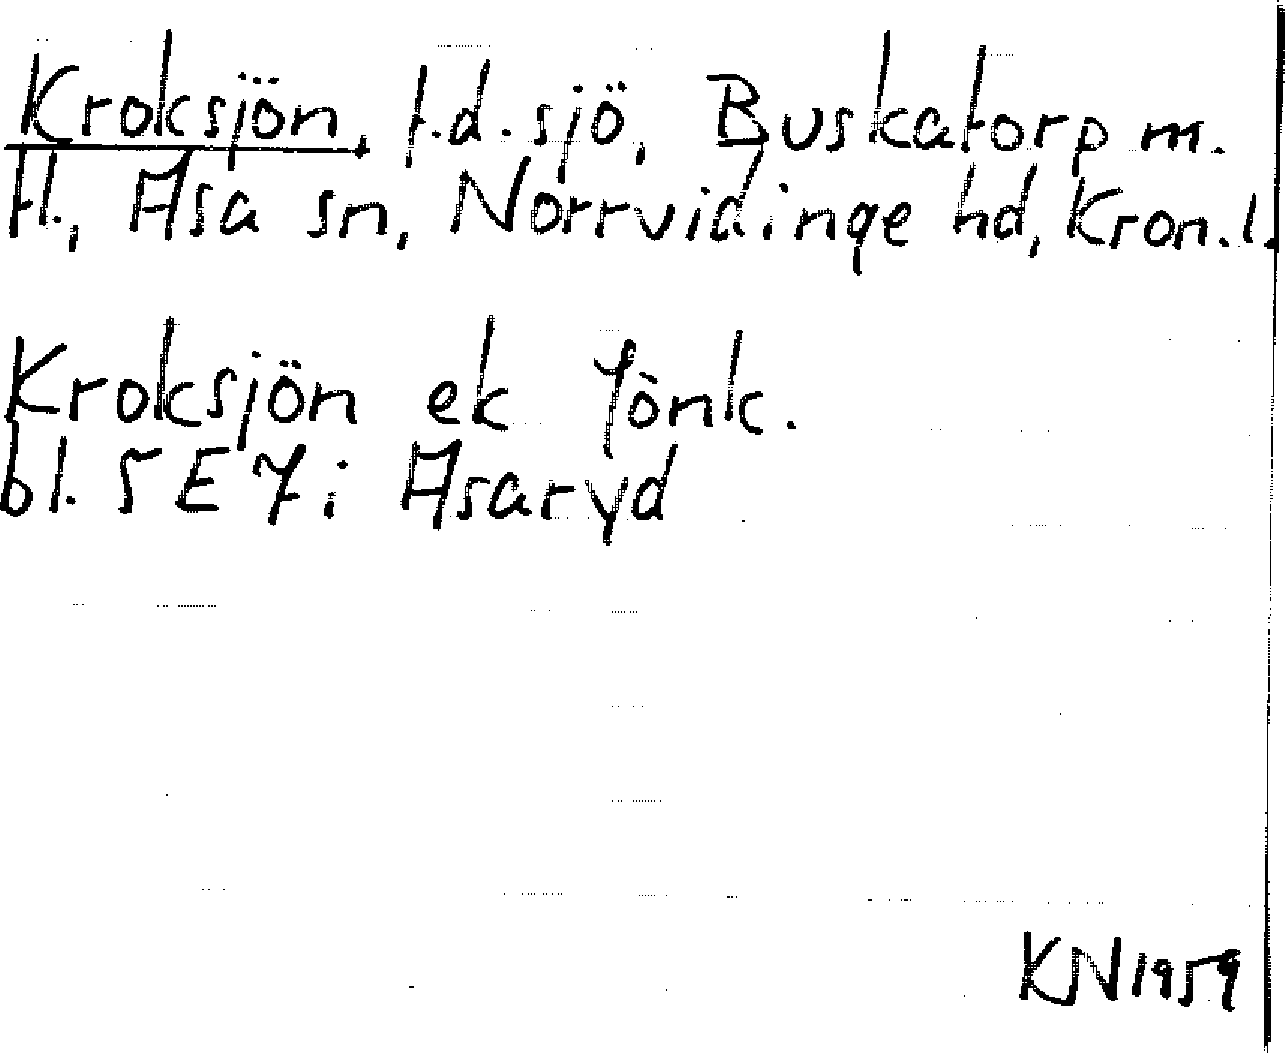 Kroksjön, f.d. sjö, Buskatorp m.
fl., Asa sn, Norrvidinge hd, Kron. l.
Kroksjön ek Jönk.
bl. 5 E 7i Asaryd
KN 1959